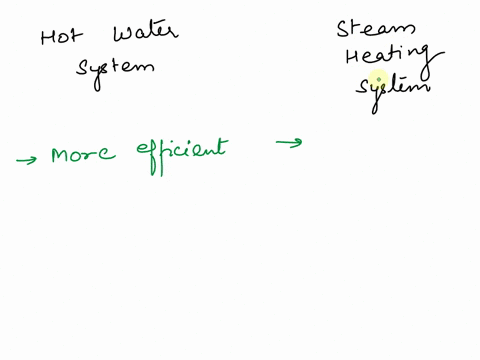 Hot Water
System
Steam
Heating
System
→ More efficient →